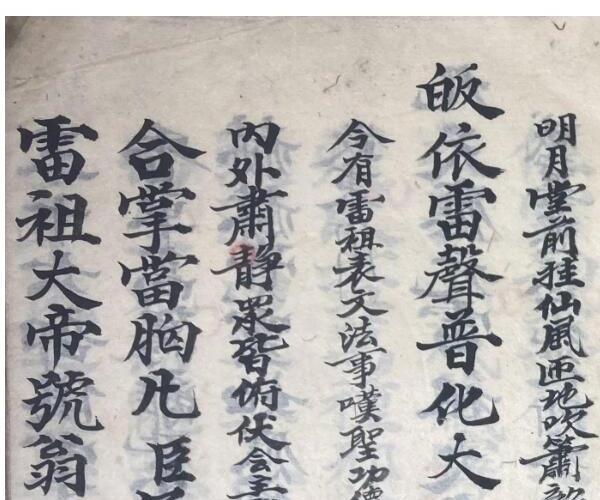 明月堂前挂仙風匝地吹簫
皈依雷聲普化大
今有雷祖表文法事嘆聖功德
內外肅靜眾皆俯伏會主
合掌當胸凡臣
雷祖大帝號翁